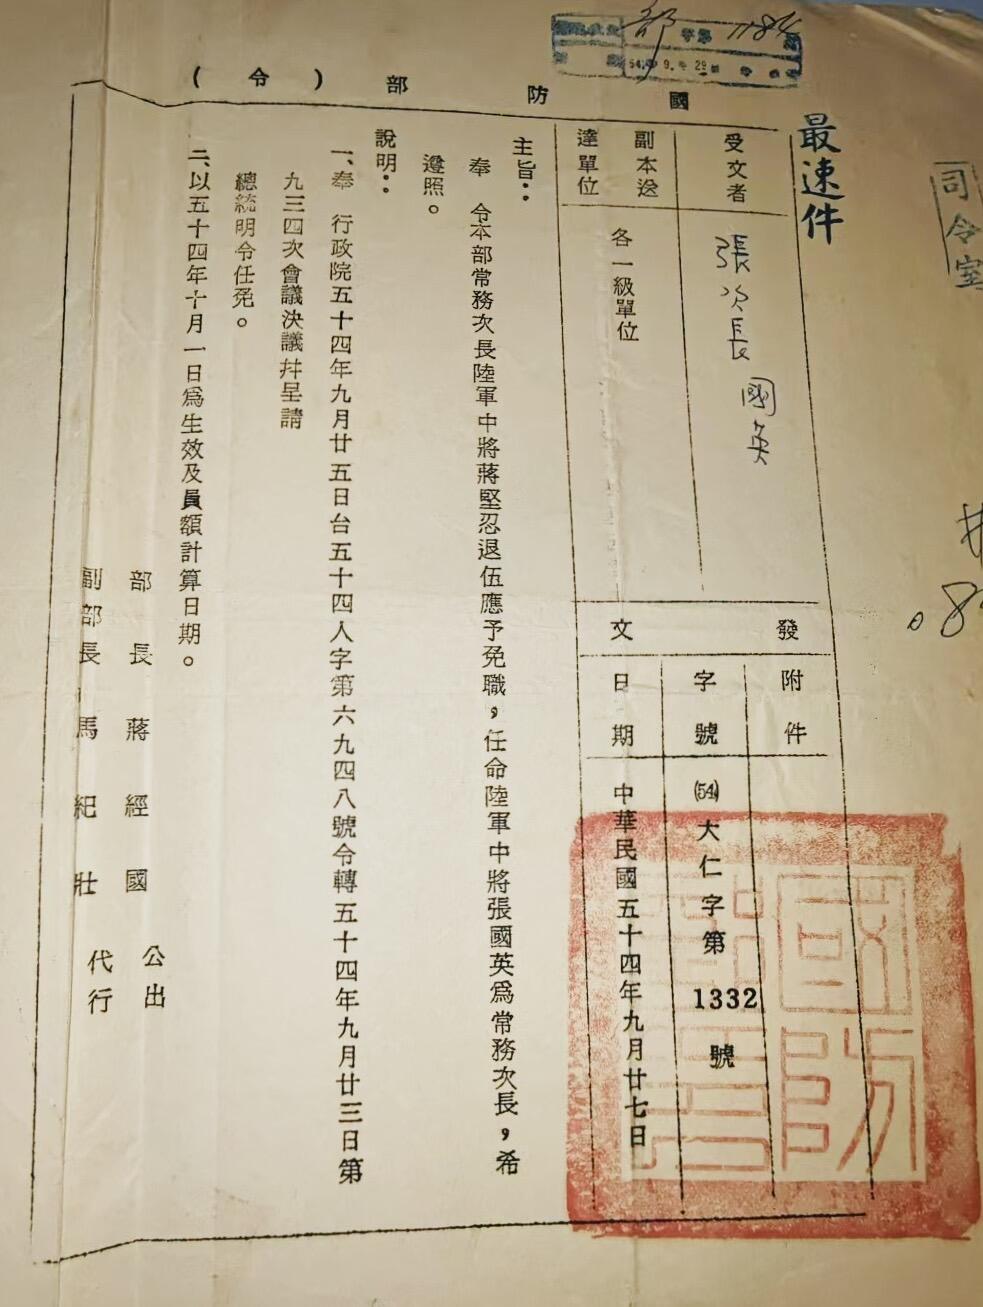 部 字第 1184
54. 9. 29
最速件
司令室
國防部（令）
受文者
張次長 國英
副本送達單位
各一級單位
發文
附件
字號
(54)大仁字第 1332 號
日期
中華民國五十四年九月廿七日
主旨：
奉 令本部常務次長陸軍中將蔣堅忍退伍應予免職，任命陸軍中將張國英為常務次長，希
遵照。
說明：
一、奉 行政院五十四年九月廿五日台五十四人字第六九四八號令轉五十四年九月廿三日第
九三四次會議決議幷呈請
總統明令任免。
二、以五十四年十月一日為生效及員額計算日期。
部長蔣經國 公出
副部長馬紀壯 代行
國防部